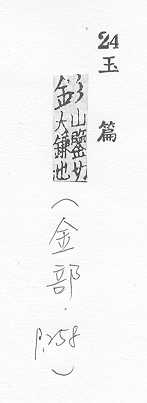 24
玉篇
釤山鑒切
大鎌也
(金部.P.258)